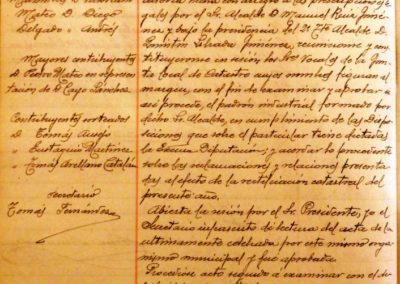 Mateo D. Diego
Delgado " Andrés
Mayores contribuyentes
D. Pedro Mateo en represen
tación de D. Cayo Sanchez
Contribuyentes sorteados
D. Tomás Asensjo
" Eustaquio Martinez
" Tomás Arellano Catalán
Secretario
Tomás Fernández
gales por el Sr. Alcalde D. Manuel Ruiz Jimé
nez y bajo la presidencia del Sr. Tte Alcalde D.
Estrada Jimenez, reunieronse y cons
tituyeronse en sesión los Srs Vocales de la Jun
ta local de Catastro cuyos nombres figuran al
margen, con el fin de examinar y aprobar a
así procede, el padrón industrial formado por
dicho Sr. Alcalde, en cumplimiento de las Dispo
siciones que sobre el particular tiene dictadas
la Excma Diputación; y acordar lo procedente
sobre las reclamaciones y relaciones presenta
das al efecto de la rectificación catastral del
presente año.
Abierta la sesión por el Sr. Presidente, yo el
Secretario infrascrito dí lectura del acta de la
ultimamente celebrada por este mismo orga
nismo municipal y fue aprobada.
Procedióse acto seguido á examinar con el de